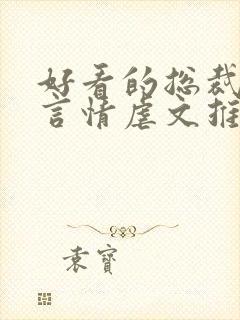 好看的总裁
言情虐文推
袁寶